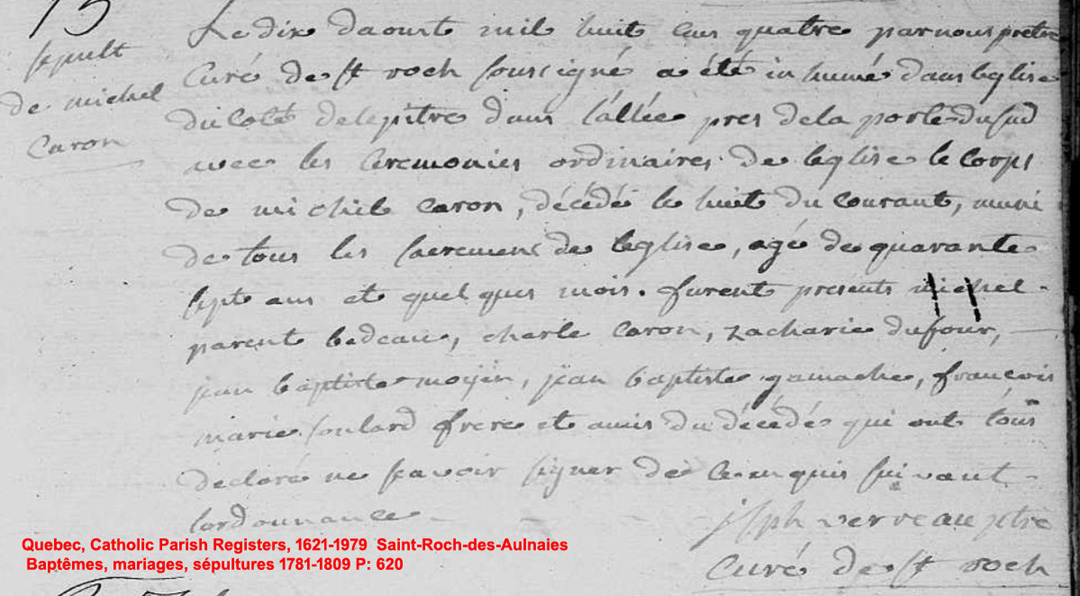 15
sepult
de michel
caron
Le dix daoust mil huit cens quatre par nous prêtre
Curé de St roch soussigné a été inhumé dans leglise
du coté delepitre dans l'allée pres de la porte du sud
avec les ceremonies ordinaires de leglise le corps
de michel caron, décédé le huit du courant, muni
de tous les sacremens de leglise, agé de quarante
sept ans et quelques mois. furent presents michel
parent bedeau, charle caron, zacharie dufour,
jean baptiste moyen, jean baptiste gamache, françois
marie soulard frere et amis du décédé qui ont tous
declaré ne savoir signer de ce enquis suivant
lordonnance
jseph verreau ptre
Curé de St roch
Quebec, Catholic Parish Registers, 1621-1979 Saint-Roch-des-Aulnaies
Baptêmes, mariages, sépultures 1781-1809 P: 620